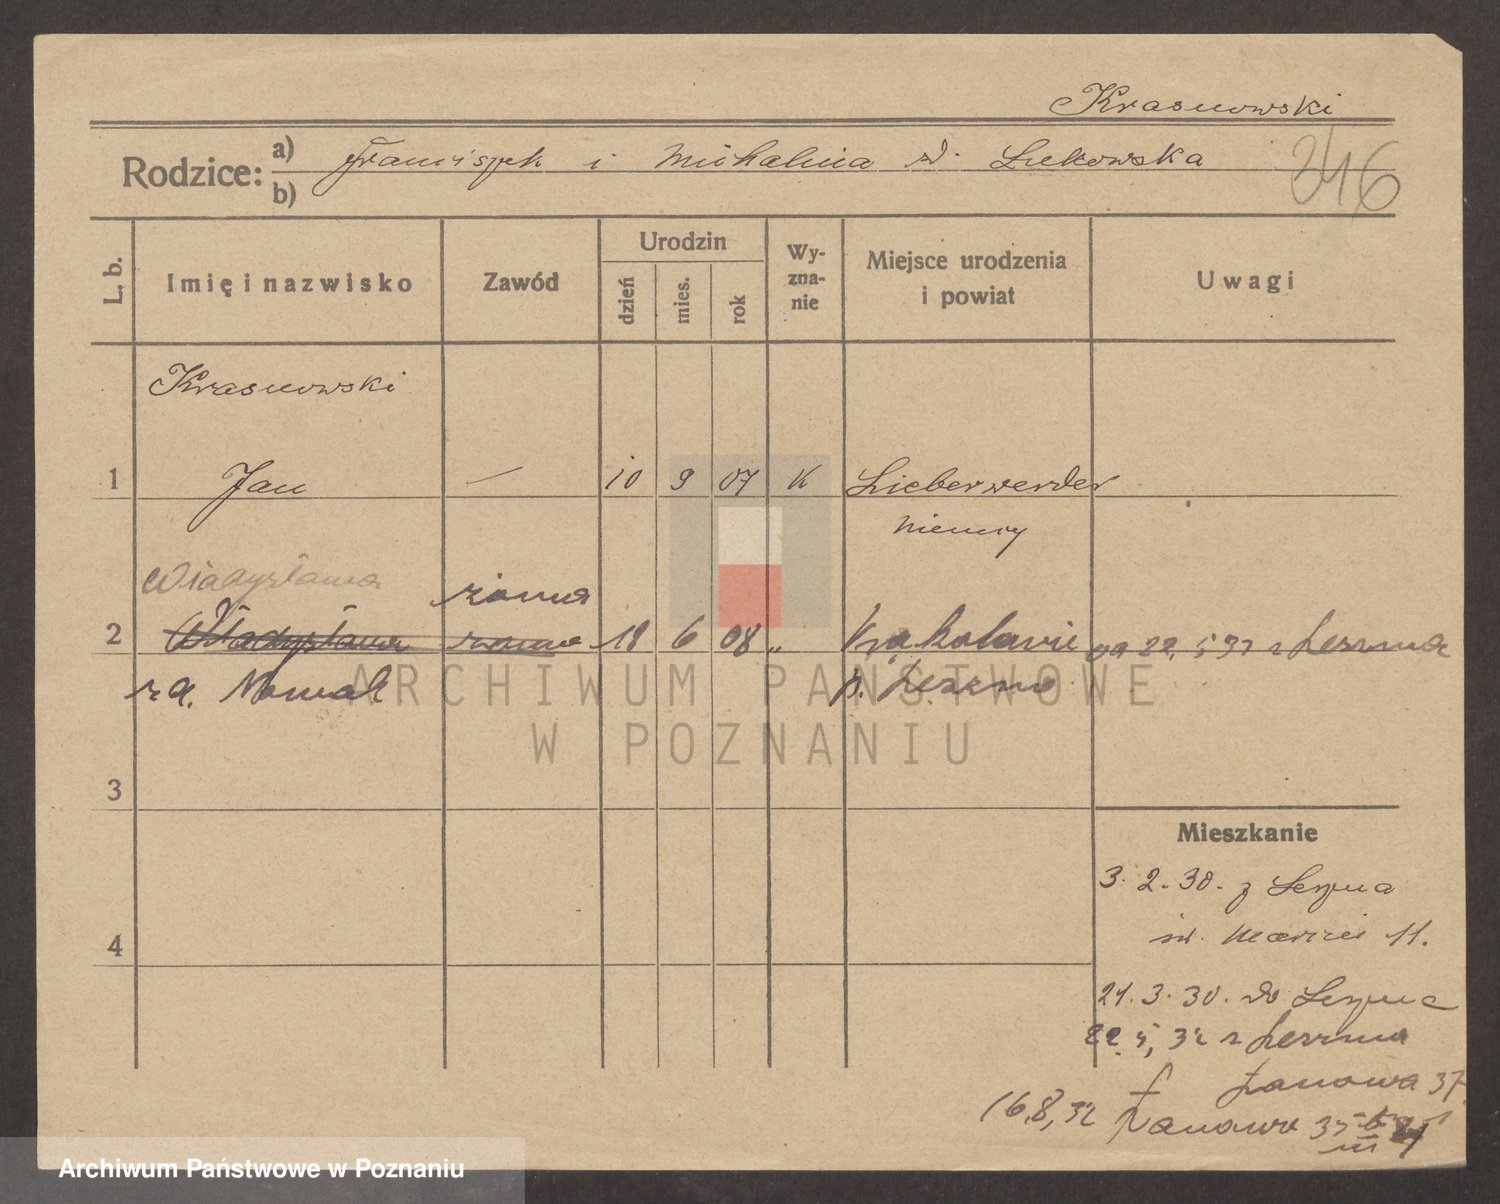 Krasnowski
Rodzice: a) Franciszek i Michalina d. Lukowska
b)
346
L. b. Imię i nazwisko Zawód Urodzin dzień mies. rok Wyznanie Miejsce urodzenia i powiat Uwagi
Krasnowski
1 Jan — 10 9 07 K Lieberwerder
Niemcy
Władysława żona
2 Władysława żona 18 6 08 „ 22. 5 32 z Leszna
za. Nowak p. Leszno
ARCHIWUM PAŃSTWOWE
W POZNANIU
3
Mieszkanie
3. 2. 30. z Leszna
św. Marcin 11.
4
21. 3. 30. do Leszna
22. 5, 32 z Leszna
Łanowa 37
16,8, 32 Łanowa 35
Archiwum Państwowe w Poznaniu